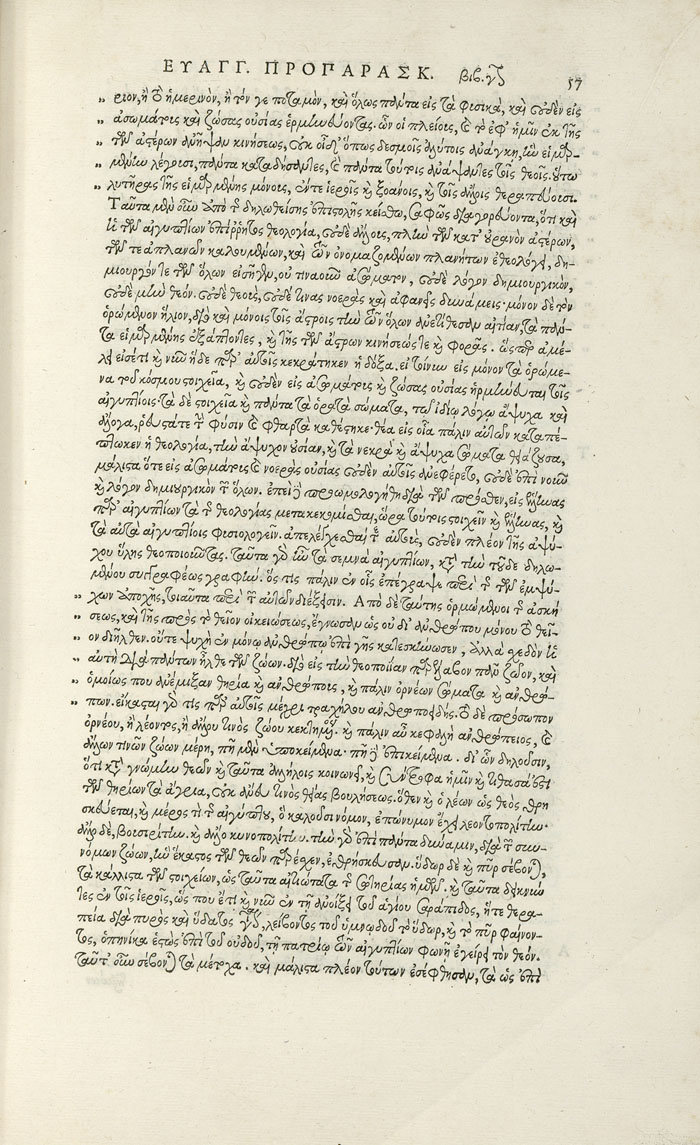 ΕΥΑΓΓ. ΠΡΟΠΑΡΑΣΚ. βιβ. γʹ 57
ριον, ἢ τὸ ἡμερινὸν, ἢ τόν γε ποταμὸν, καὶ ὅλως πάντα εἰς τὰ φυσικὰ, καὶ οὐδὲν εἰς
ἀσωμάτους καὶ ζώσας οὐσίας ἑρμηνεύοντας. ὧν οἱ πλείους, καὶ τὸ ἐφ' ἡμῖν ἐκ τῆς
τῶν ἀστέρων ἀνῆψαν κινήσεως, οὐκ οἶδ' ὅπως δεσμοῖς ἀλύτοις ἀνάγκη, ἣν εἱμαρ-
μένην λέγουσι, πάντα καταδήσαντες, καὶ πάντα τούτοις ἀνάψαντες τοῖς θεοῖς. οὓς
λυτῆρας τῆς εἱμαρμένης μόνους, ἔν τε ἱεροῖς καὶ ξοάνοις, καὶ τοῖς ἄλλοις θεραπεύουσι.
Ταῦτα μὲν οὖν ἀπὸ τῆς δηλωθείσης ἐπιστολῆς κείσθω, σαφῶς διαγορεύοντα, ὅτι καὶ
ἡ τῶν αἰγυπτίων ἀπόρρητος θεολογία, οὐδὲ ἄλλους, πλὴν τῶν κατ' οὐρανὸν ἀστέρων,
τῶν τε ἀπλανῶν καλουμένων, καὶ τῶν ὀνομαζομένων πλανήτων ἐθεολόγει, δη-
μιουργόν τε τῶν ὅλων εἰσῆγεν, οὔ τινα οὖν ἀσώματον, οὐδὲ λόγον δημιουργικὸν,
οὐδὲ μὴν θεόν. οὐδὲ θεοὺς, οὐδέ τινας νοερὰς καὶ ἀφανεῖς δυνάμεις· μόνον δὲ τὸν
ὁρώμενον ἥλιον, διὸ καὶ μόνοις τοῖς ἄστροις τὴν τῶν ὅλων ἀνετίθεσαν αἰτίαν, τὰ πάν-
τα εἱμαρμένης ἐξάπτοντες, καὶ τῆς τῶν ἄστρων κινήσεώς τε καὶ φορᾶς. ὥσπερ ἀμέ-
λει εἰσέτι καὶ νῦν ἥδε παρ' αὐτοῖς κεκράτηκεν ἡ δόξα. εἰ τοίνυν εἰς μόνον τὰ ὁρώμε-
να τοῦ κόσμου στοιχεῖα, καὶ οὐδὲν εἰς ἀσωμάτους καὶ ζώσας οὐσίας ἡρμήνευται τοῖς
αἰγυπτίοις. τὰ δὲ στοιχεῖα καὶ πάντα τὰ ὁρατὰ σώματα, τῷ ἰδίῳ λόγῳ ἄψυχα καὶ
ἄλογα, ῥευστά τε τὴν φύσιν καὶ φθαρτὰ καθέστηκε· θέα εἰς οἷα πάλιν αὐτῶν καταπέ-
πτωκεν ἡ θεολογία, τὴν ἄψυχον οὐσίαν, καὶ τὰ νεκρὰ καὶ ἄψυχα σώματα θειάζουσα,
μάλιστα ὅτε εἰς ἀσωμάτους καὶ νοερὰς οὐσίας οὐδὲν αὐτοῖς ἀνεφέρετο, οὐδὲ ἐπὶ νοῦν
καὶ λόγον δημιουργικὸν τῶν ὅλων. ἐπεὶ δὲ προωμολογήθη διὰ τῶν πρόσθεν, εἰς ἕλληνας
παρ' αἰγυπτίων τὰ τῆς θεολογίας μετακεκομίσθαι, ὥρα τούτοις στοιχεῖν καὶ ἕλληνας, καὶ
τὰ αὐτὰ αἰγυπτίοις φυσιολογεῖν. ἀπελέγχεσθαί τε αὐτοὺς, οὐδὲν πλέον τῆς ἀψύ-
χου ὕλης θεοποιοῦντας. ταῦτα γὰρ ἦν τὰ σεμνὰ αἰγυπτίων, κατὰ τὴν τοῦδε δηλω-
μένου συγγραφέως γραφήν. ὅς τις πάλιν ἐν οἷς ἐπέγραψε περὶ τῆς τῶν ἐμψύ-
χων ἀποχῆς, τοιαῦτα περὶ τῶν αὐτῶν διέξεισιν. Ἀπὸ δὲ ταύτης ὁρμώμενοι τῆς ἀσκή
σεως, καὶ τῆς πρὸς τὸ θεῖον οἰκειώσεως, ἔγνωσαν ὡς οὐ δι' ἀνθρώπου μόνου τὸ θεῖ-
ον διῆλθεν. οὔτε ψυχὴ ἐν μόνῳ ἀνθρώπῳ ἐπὶ γῆς κατεσκήνωσεν, ἀλλὰ σχεδὸν ἡ
αὐτὴ διὰ πάντων ἦλθε τῶν ζώων. διὸ εἰς τὴν θεοποιΐαν παρέλαβον πᾶν ζῶον, καὶ
ὁμοίως που ἀνέμιξαν θηρία καὶ ἀνθρώπους, καὶ πάλιν ὀρνέων σώματα καὶ ἀνθρώ-
πων. εἴκασται γάρ τις παρ' αὐτοῖς μέχρι τραχήλου ἀνθρωποειδής. τὸ δὲ πρόσωπον
ὀρνέου, ἢ λέοντος, ἢ ἄλλου τινὸς ζώου κεκτημένος. καὶ πάλιν αὖ κεφαλὴ ἀνθρώπειος, καὶ
ἄλλων τινῶν ζώων μέρη, πῇ μὲν ὑποκείμενα. πῇ δὲ ἐπικείμενα. δι' ὧν δηλοῦσιν,
ὅτι κατὰ γνώμην θεῶν καὶ ταῦτα ἀλλήλοις κοινωνεῖ, καὶ σύντροφα ἡμῖν καὶ τιθασά ἐστι
τῶν θηρίων τὰ ἄγρια, οὐκ ἄνευ τινὸς θείας βουλήσεως. ὅθεν καὶ ὁ λέων ὡς θεὸς θρη
σκεύεται, καὶ μέρος τι τῆς αἰγύπτου, ὃ καλοῦσι νόμον, ἐπώνυμον ἔχει λεοντοπολίτην·
ἄλλο δὲ, βουσιρίτην. καὶ ἄλλο κυνοπολίτην. τὴν γὰρ ἐπὶ πάντα δύναμιν, διὰ τῶν συν-
νόμων ζώων, ὧν ἕκαστος τῶν θεῶν παρέχει, ἐθρήσκευσαν. ὕδωρ δὲ καὶ πῦρ σέβονται,
τὰ κάλλιστα τῶν στοιχείων, ὡς ταῦτα αἰτιώτατα τῆς σωτηρίας ἡμῶν. καὶ ταῦτα δεικνύν
τες ἐν τοῖς ἱεροῖς, ὥς που ἔτι καὶ νῦν ἐν τῇ ἀνοίξει τοῦ ἁγίου Σαράπιδος, ἥ τε θερα-
πεία διὰ πυρὸς καὶ ὕδατος γίνεται, λείβοντος τοῦ ὑμνῳδοῦ τὸ ὕδωρ, καὶ τὸ πῦρ φαίνον-
τος, ὁπηνίκα ἑστὼς ἐπὶ τοῦ οὐδοῦ, τῇ πατρίῳ τῶν αἰγυπτίων φωνῇ ἐγείρει τὸν θεόν.
ταῦτ' οὖν σέβονται τὰ μέτοχα. καὶ μάλιστα πλέον τούτων ἐσέφθησαν, τὰ ὡς ἐπὶ